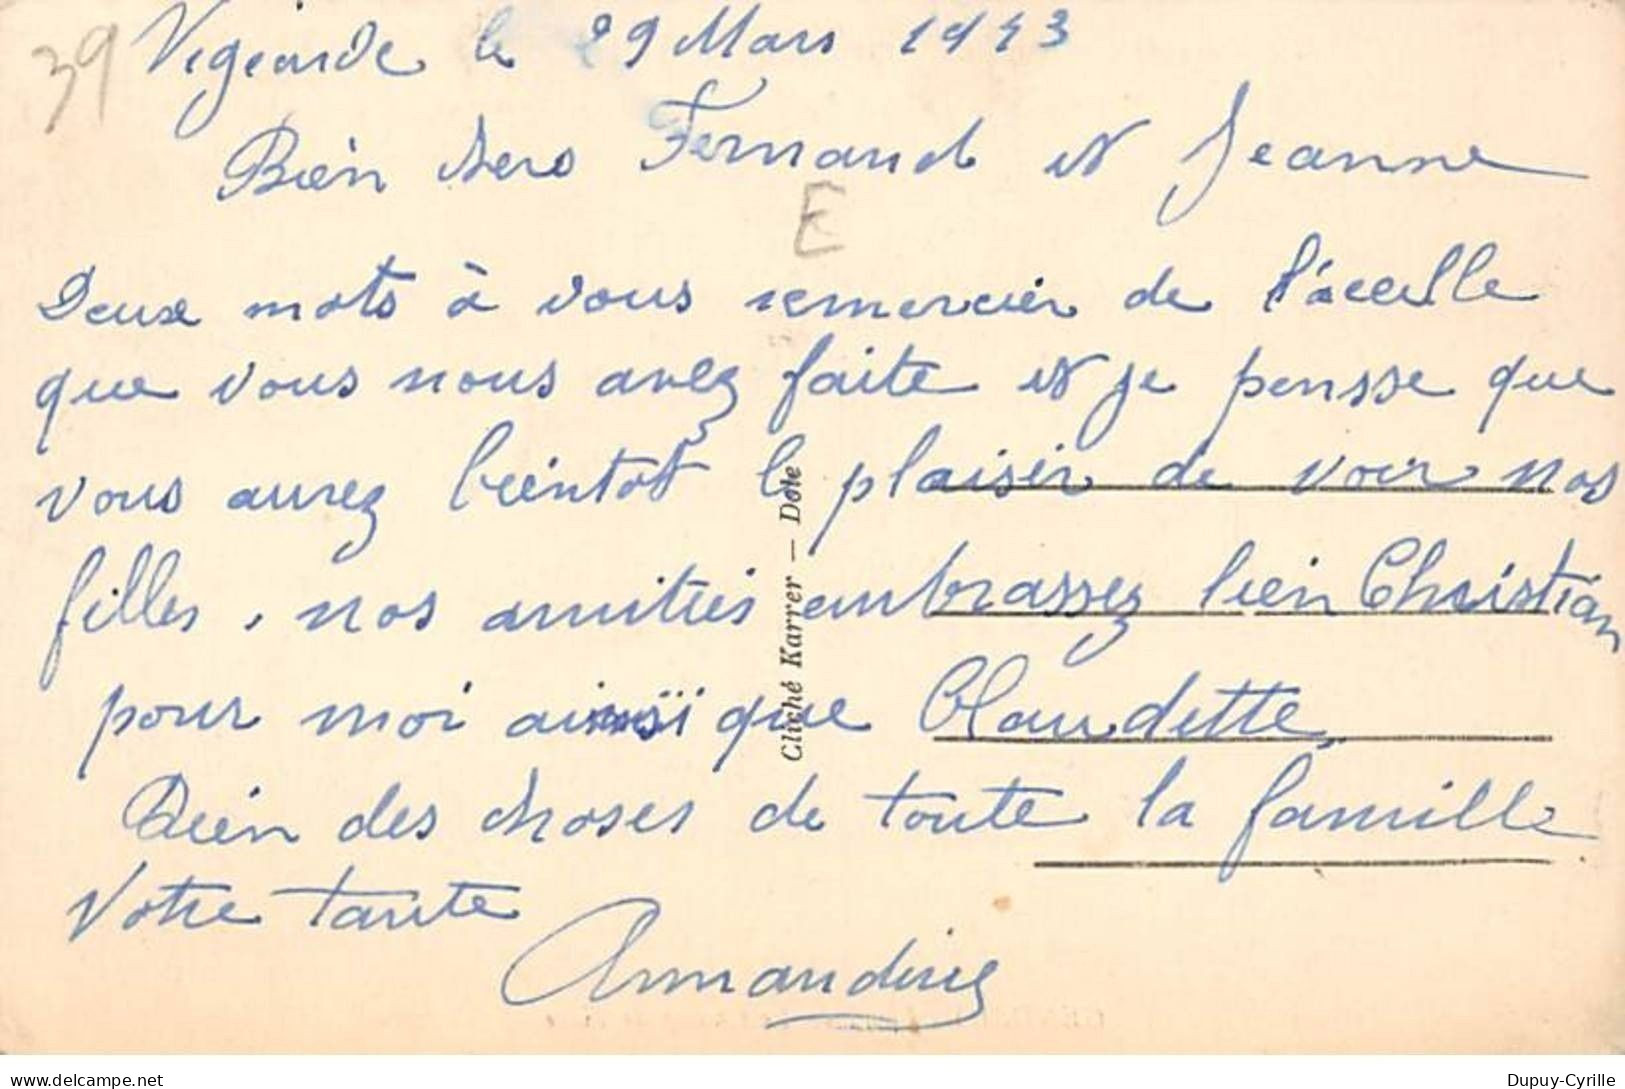 39
le 29 Mars 1943
Bien chers Fernand et Jeanne
E
Deux mots à vous remercier de
que vous nous avez faite et je pensse que
vous aurez bientot le plaisir de voir nos
filles, nos amitiés embrassez bien Christian
pour moi ainsi que Claudette,
Bien des choses de toute la famille
Votre tante
Armandine
Cliché Karrer — Dole
delcampe.net
Dupuy-Cyrille